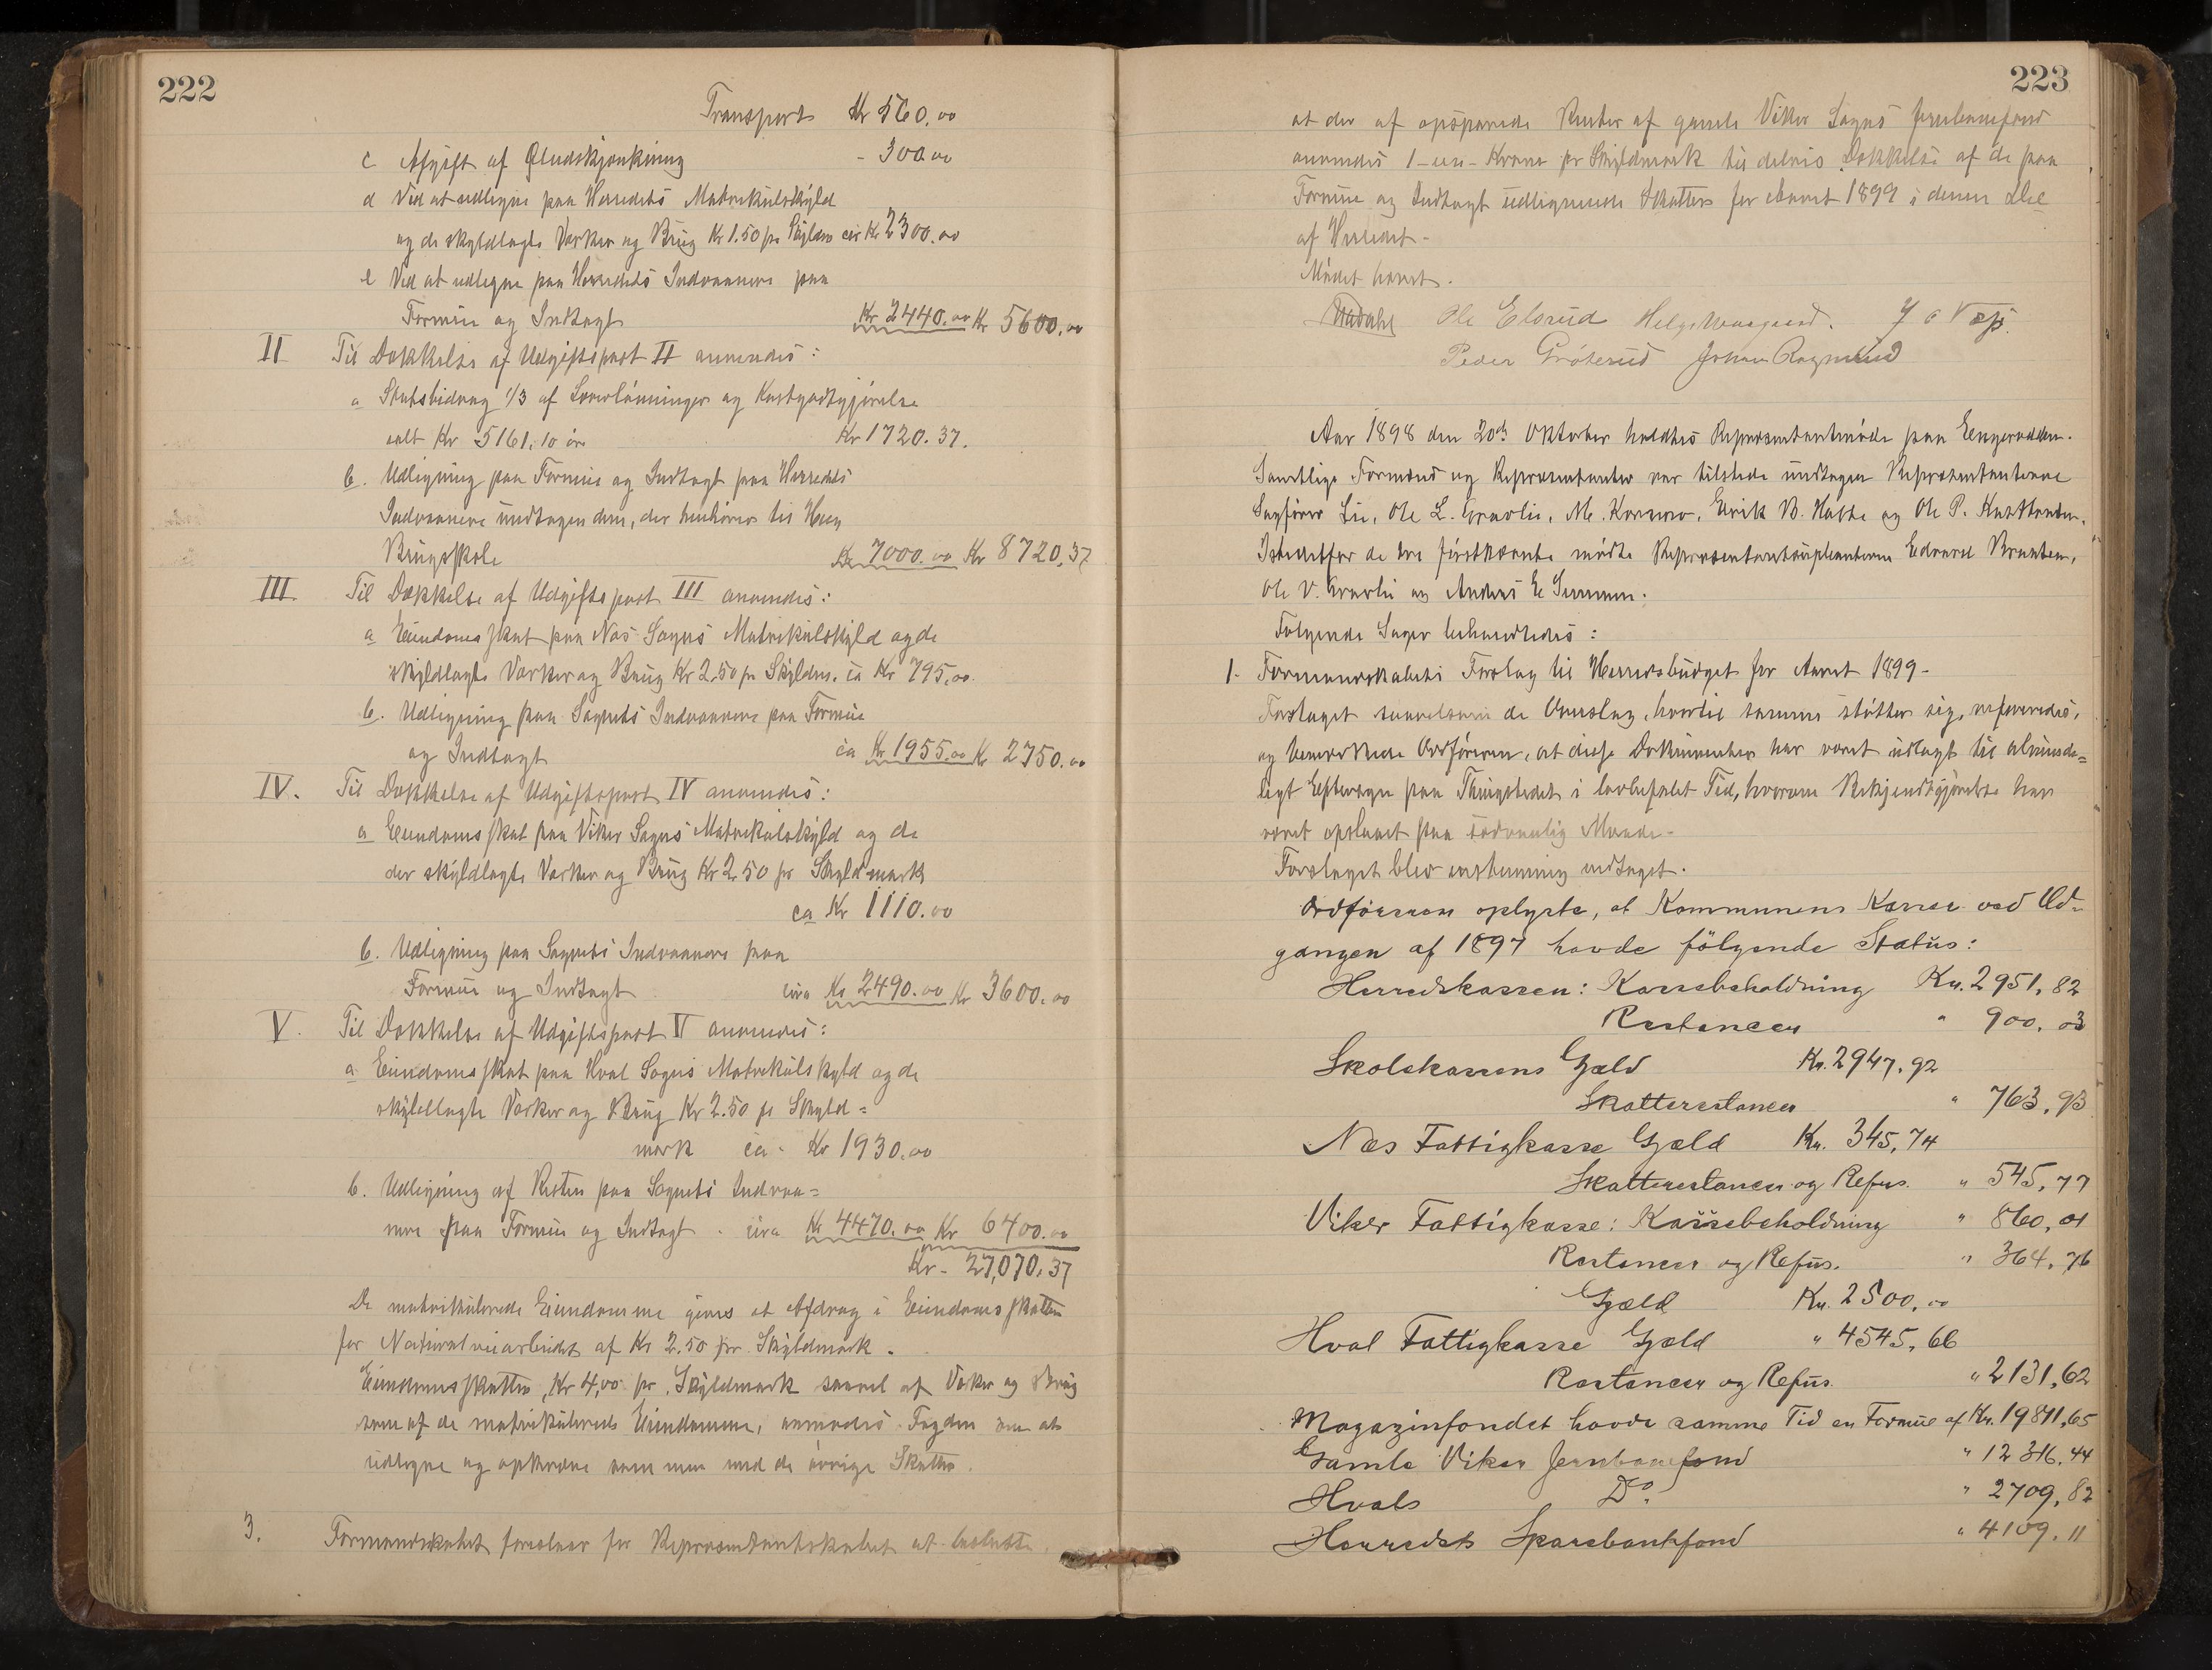 222
Transport Kr 560.00
c Afgift af Øludskjænkning - 300.00
d Ved at udligne paa Herredets Matrikulskyld
og de skyldlagte Værker og Brug Kr 1.50 pr Skyldm cir Kr 2300.00
e Ved at udligne paa Herredets Indvaanere paa
Formue og Indtægt Kr 2440.00 Kr 5600.00
II Til Dækkelse af Udgiftspost II anvendes:
a Statsbidrag 1/3 af Lærerlønninger og Kostgodtgjørelse
valt Kr 5161.10 øre Kr 1720.37.
b. Udligning paa Formue og Indtægt paa Herredets
Indvaanere undtagen dem, der henhører til Hen
Brugsskole Kr 7000.00 Kr 8720,37
III. Til Dækkelse af Udgiftspost III anvendes:
a Eiendomsskat paa Næs Sogns Matrikulskyld og de
skyldlagte Værker og Brug Kr 2.50 pr Skyldm. ca Kr 795,00.
b. Udligning paa Sognets Indvaanere paa Formue
og Indtægt ca Kr 1955.00 Kr 2750.00
IV. Til Dækkelse af Udgiftspost IV anvendes:
a Eiendomsskat paa Viker Sogns Matrikulskyld og de
der skyldlagte Værker og Brug Kr 2.50 pr Skyldmark
ca Kr 1110.00
b. Udligning paa Sognets Indvaanere paa
Formue og Indtægt circa Kr 2490.00 Kr 3600.00
V. Til Dækkelse af Udgiftspost V anvendes:
a Eiendomsskat paa Hval Sogns Matrikulskyld og de
skyldlagte Værker og Brug Kr 2.50 pr Skyld=
mark ca. Kr 1930.00
b. Udligning af Resten paa Sognets Indvaa=
nere paa Formue og Indtægt . circa Kr 4470.00 Kr 6400.00
Kr. 27,070.37
De matrikulerede Eiendomme gives et Afdrag i Eiendomsskatten
for Naturalveiarbeidet af Kr 2.50 pr. Skyldmark.
Eiendomsskatten, Kr 4,00 pr. Skyldmark saavel af Værker og Brug
som af de matrikulerede Eiendomme, anmodes Fogden om at
udligne og opkræve sammen med de øvrige Skatter.
3. Formandskabet foreslaar for Repræsentantskabet at beslutte
223
at der af opsparede Renter af gamle Viker Sogns Jernbanefond
anvendes 1-een-Krone pr Skyldmark til delvis Dækkelse af de paa
Formue og Indtægt udlignende Skatter for Aaret 1899 i denne Del
af Herredet.
Mødet hævet.
Ole Elsrud
Peder Grøterud
Aar 1898 den 20de Oktober holdtes Repræsentantmøde paa
Samtlige Formænd og Repræsentanter var tilstede undtagen Repræsentanterne
Sagfører Lie, Ole L. Gravlie, M. Korsmo, Eirik B. Habbe og Ole P.
Istedetfor de tre førstnævnte mødte Repræsentantsuppleanterne Edvard Braaten,
Ole V. Gravlie og Anders E
Følgende Sager behandledes:
1. Formandskabets Forslag til Herredsbudget for Aaret 1899-
Forslaget saavelsom de Overslag, hvortil samme støtter sig, refereredes,
og bemærkede Ordføreren, at disse Dokumenter har været udlagt til alminde=
ligt Eftersyn paa Thingstedet i lovbefalet Tid, hvorom Bekjendtgjørelse har
været opslaaet paa sædvanlig Maade.
Forslaget blev enstemmig vedtaget.
Ordføreren oplyste, at Kommunens Kasser ved Ud-
gangen af 1897 havde følgende Status:
Herredskassen: Kassebeholdning Kr. 2951,82
Restancer " 900,03
Skolekassens Gjæld Kr. 2947,92
Skatterestancer " 763,93
Næs Fattigkasse Gjæld Kr. 345,74
Skatterestancer og Refus. " 545,77
Viker Fattigkasse: Kassebeholdning " 860,01
Restancer og Refus. " 364,76
Gjæld Kr. 2500,00
Hval Fattigkasse Gjæld " 4545,66
Restancer og Refus. " 2131,62
Magazinfondet havde samme Tid en Formue af Kr. 19811,65
Gamle Viker Jernbanefond " 12316,44
Hvals Do. " 2709,82
Herredets Sparebankfond " 4109,11